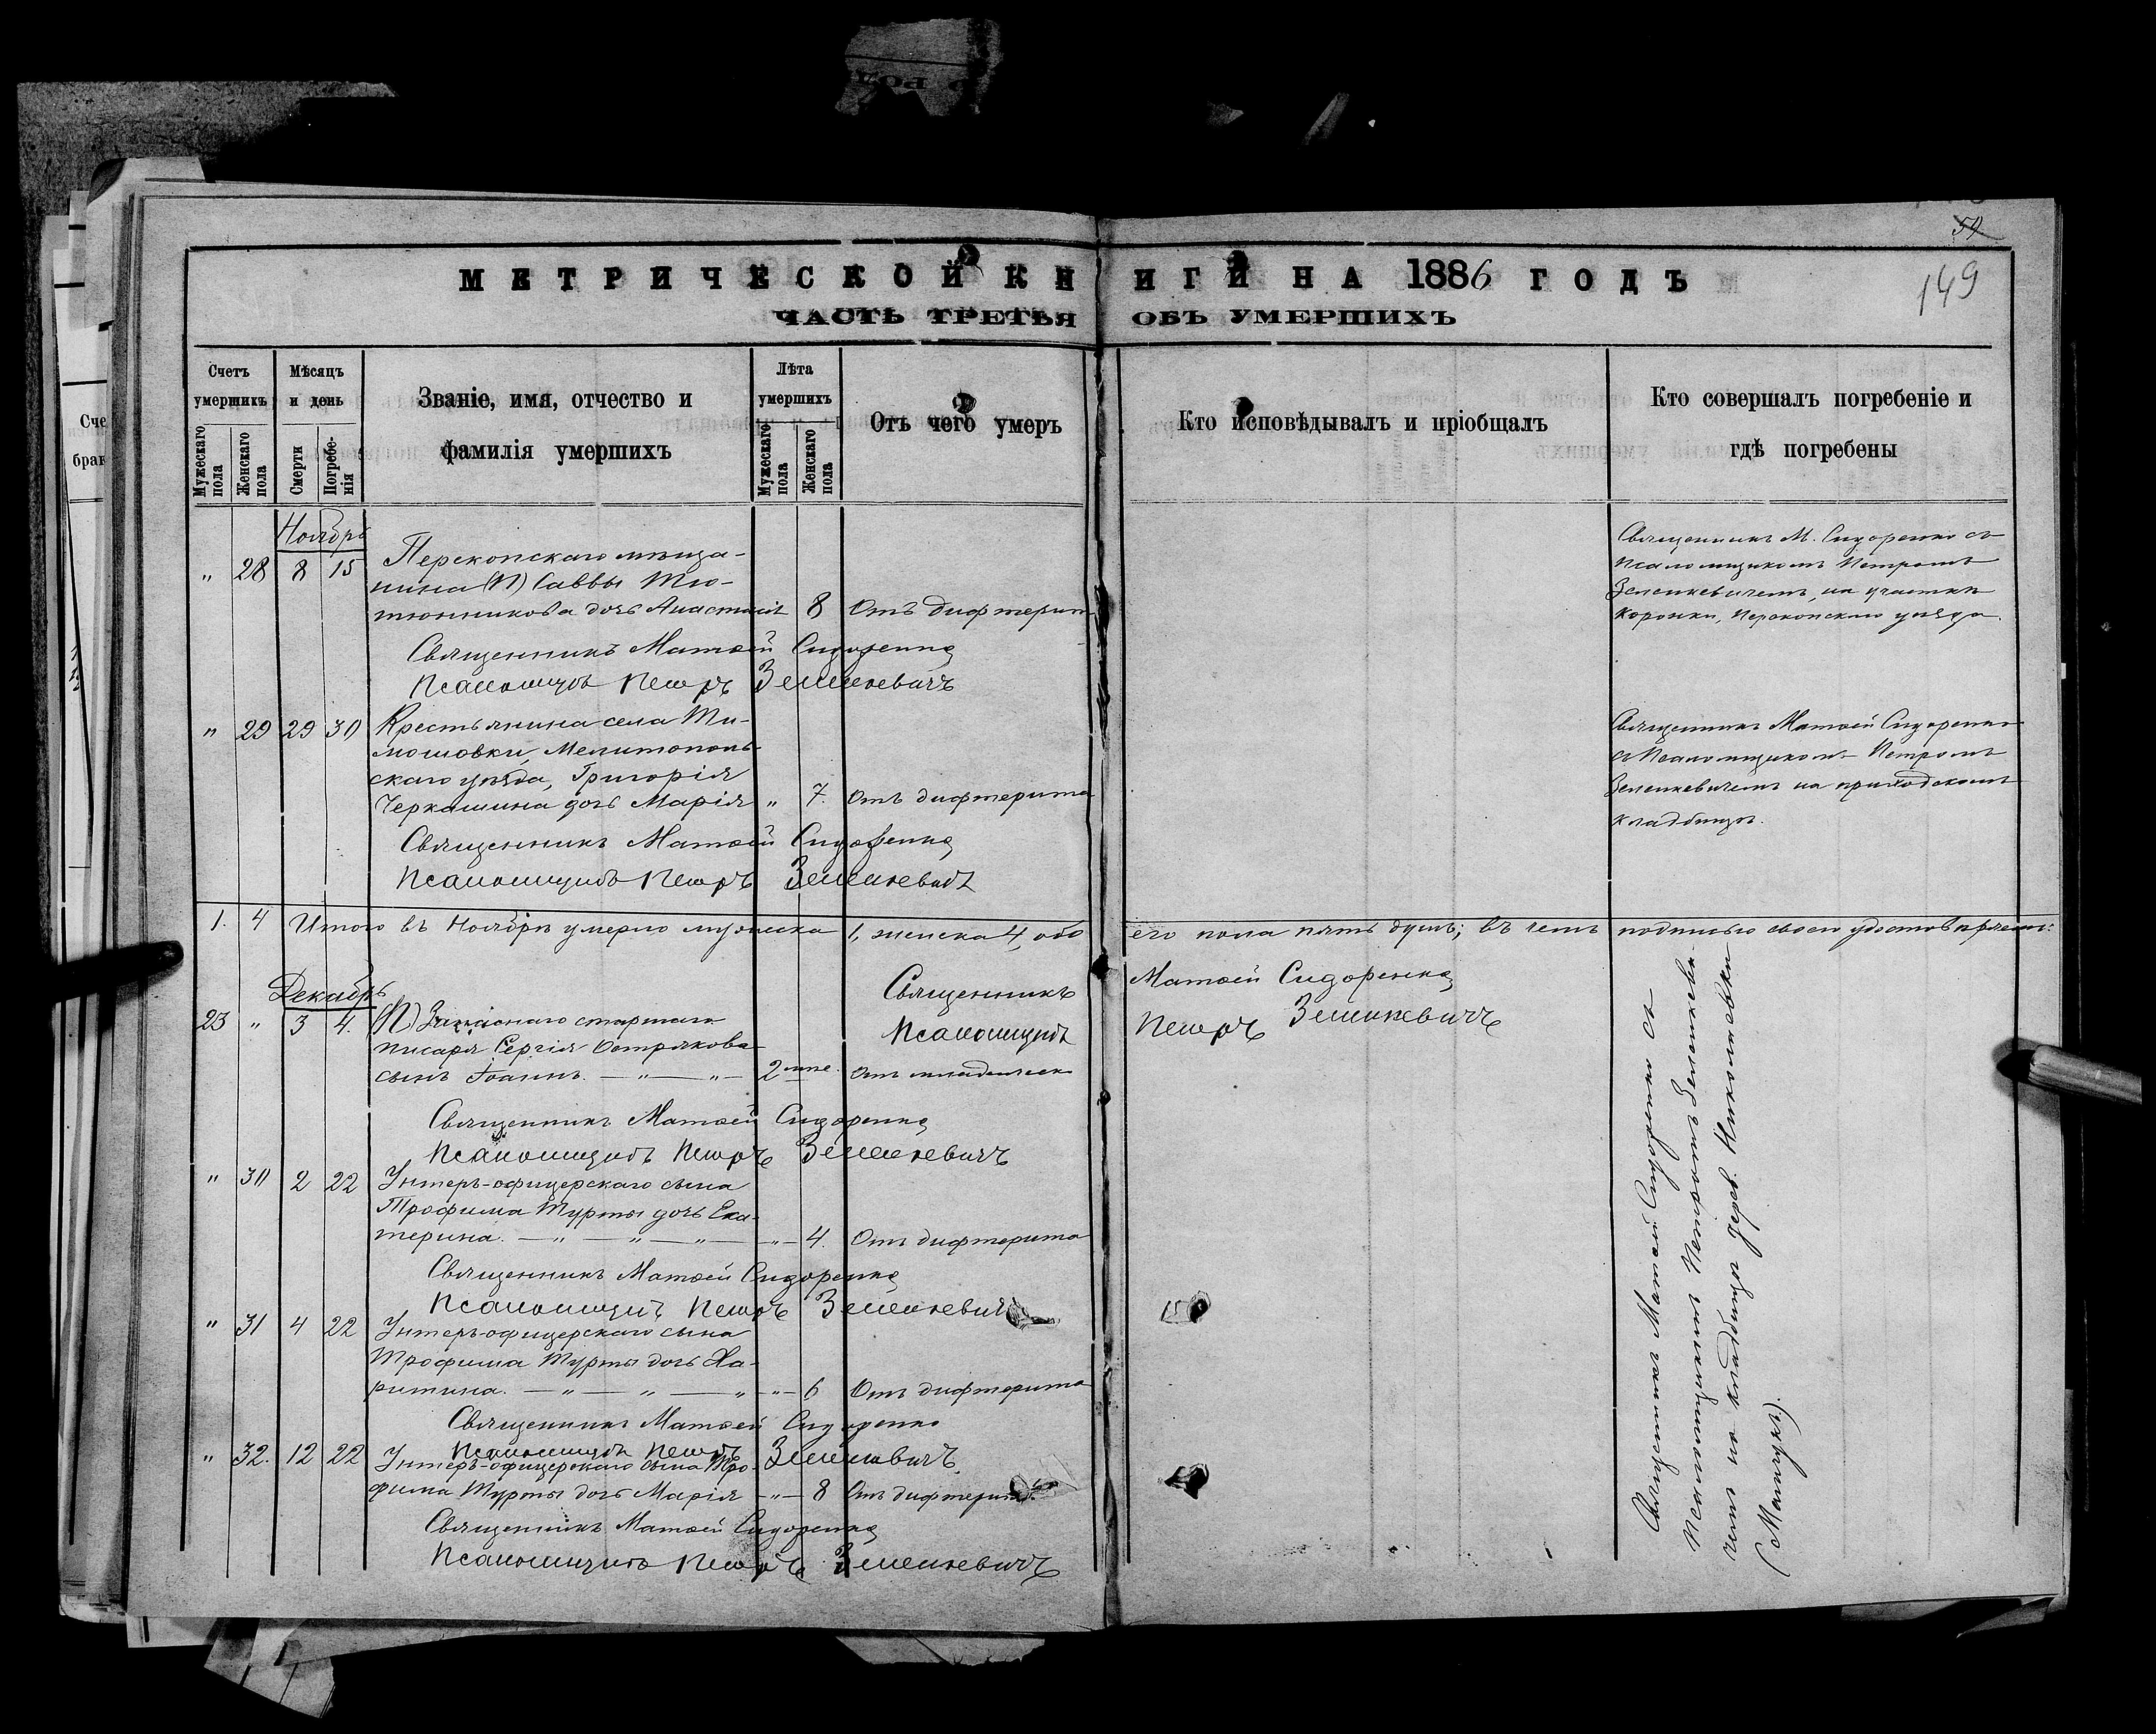 59
149
МЕТРИЧЕСКОЙ КНИГИ НА 1886 ГОДЪ
ЧАСТЬ ТРЕТЬЯ ОБЪ УМЕРШИХЪ
Счетъ умершихъ
Мужескаго пола
Женскаго пола
Мѣсяцъ и день
Смерти
Погребенія
Званіе, имя, отчество и
фамилія умершихъ
Лѣта умершихъ
Мужескаго пола
Женскаго пола
Отъ чего умеръ
Кто исповѣдывалъ и пріобщалъ
Кто совершалъ погребеніе и
гдѣ погребены
Сче
брак
Ноябрь
" 28 8 15 Перекопскаго мѣща-
нина (П) Саввы Тю-
тюнникова дочь Анастасія 8 Отъ дифтерит
Священникъ М. Сидоренко съ
псаломщикомъ Петромъ
Зеленкевичемъ, на участкѣ
Коронки, Перекопскаго уѣзда.
Священникъ Матѳей Сидоренко
Псаломщикъ Петръ Зеленкевичъ
" 29 29 30 Крестьянина села Ти-
мошовки, Мелитополь-
скаго уѣзда, Григорія
Черкашина дочь Марія " 7. Отъ дифтерита
Священникъ Матѳей Сидоренко
съ Псаломщикомъ Петромъ
Зеленкевичемъ на приходскомъ
кладбищѣ.
Священникъ Матѳей Сидоренко
Псаломщикъ Петръ Зеленкевичъ
1. 4 Итого въ Ноябрѣ умерло мужеска 1, женска 4, обо его пола пять душъ; въ чемъ подписью своею удостовѣряемъ:
Священникъ Матѳей Сидоренко
Псаломщикъ Петръ Зеленкевичъ
Декабрь
23 " 3 4. (П) Запаснаго старшаго
писаря Сергія Острякова
сынъ Іоаннъ. — " — " — 2 Отъ младенческ
Священникъ Матѳей Сидоренко
Псаломщикъ Петръ Зеленкевичъ
" 30 2 22 Унтеръ-офицерскаго сына
Трофима Турты дочь Ека-
терина. — " — " — " — " — 4. Отъ дифтерита
Священникъ Матѳей Сидоренко
Псаломщикъ Петръ Зеленкевичъ
" 31 4 22 Унтеръ-офицерскаго сына
Трофима Турты дочь Ха-
ритина. — " — " — " — " — 6 Отъ дифтерита
Священникъ Матѳей Сидоренко
Псаломщикъ Петръ Зеленкевичъ
" 32. 12 22 Унтеръ-офицерскаго сына Тро-
фима Турты дочь Марія — " — 8 Отъ дифтерита
Священникъ Матѳей Сидоренко
Псаломщикъ Петръ Зеленкевичъ
Священникъ Матѳей Сидоренко съ
Псаломщикомъ Петромъ Зеленкеви-
чемъ на кладбищѣ дерев. Николаевки
(Мангукъ).